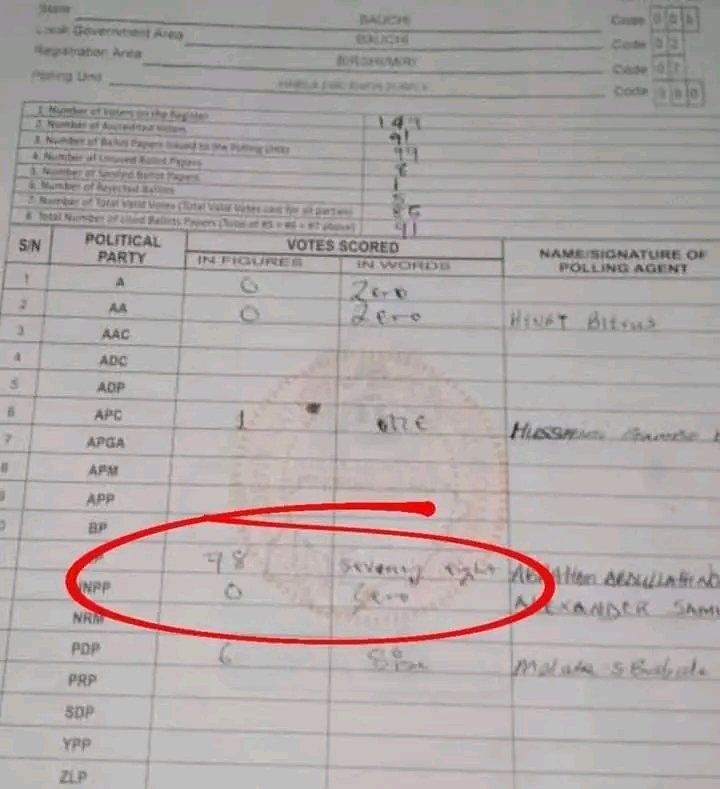 State BAUCHI Code 0 0 5
Local Government Area BAUCHI Code 0 2
Registration Area BIRSHI/MIRI Code 0 7
Polling Unit Code
1 Number of Voters on the Register 149
2. Number of Accredited Voters 91
3. Number of Ballot Papers Issued to the Polling Unit 99
4. Number of Unused Ballot Papers 8
5. Number of Spoiled Ballot Papers 1
6. Number of Rejected Ballots 5
7. Number of Total Valid Votes (Total Valid Votes cast for all parties) 85
8. Total Number of Used Ballots Papers (Total of #5 + #6 + #7 above) 91
S/N POLITICAL PARTY VOTES SCORED NAME/SIGNATURE OF POLLING AGENT
IN FIGURES IN WORDS
1 A 0 Zero
2 AA 0 Zero Bitrus
3 AAC
4 ADC
5 ADP
6 APC 1 one
7 APGA
8 APM
9 APP
BP
78 seventy eight
NNPP 0 Zero ALEXANDER
NRM
PDP 6
PRP
SDP
YPP
ZLP